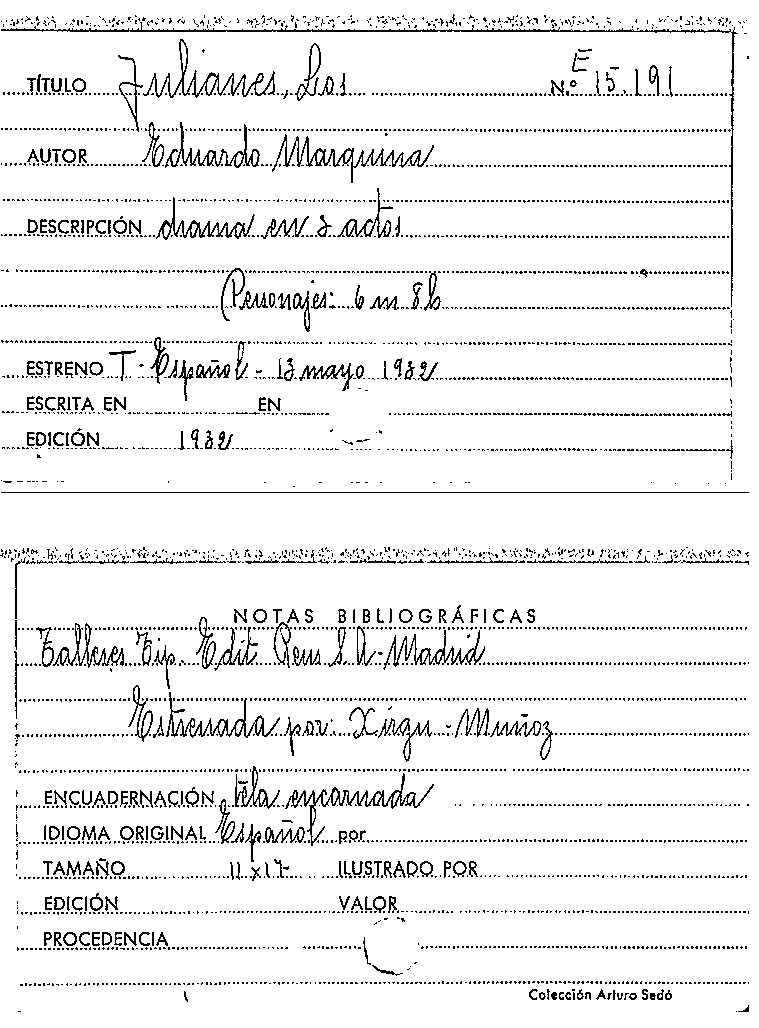 TÍTULO Julianes, Los N.º E 15.191
AUTOR Eduardo Marquina
DESCRIPCIÓN drama en 3 actos
(Personajes: 6 m 8 h
ESTRENO T. Español - 13 mayo 1932
ESCRITA EN EN
EDICIÓN 1932
NOTAS BIBLIOGRÁFICAS
Talleres Tip. Edit Reus S.A-Madrid
Estrenada por: Xirgu - Muñoz
ENCUADERNACIÓN tela encarnada
IDIOMA ORIGINAL Español por
TAMAÑO 11 x 17 ILUSTRADO POR
EDICIÓN VALOR
PROCEDENCIA
Colección Arturo Sedó